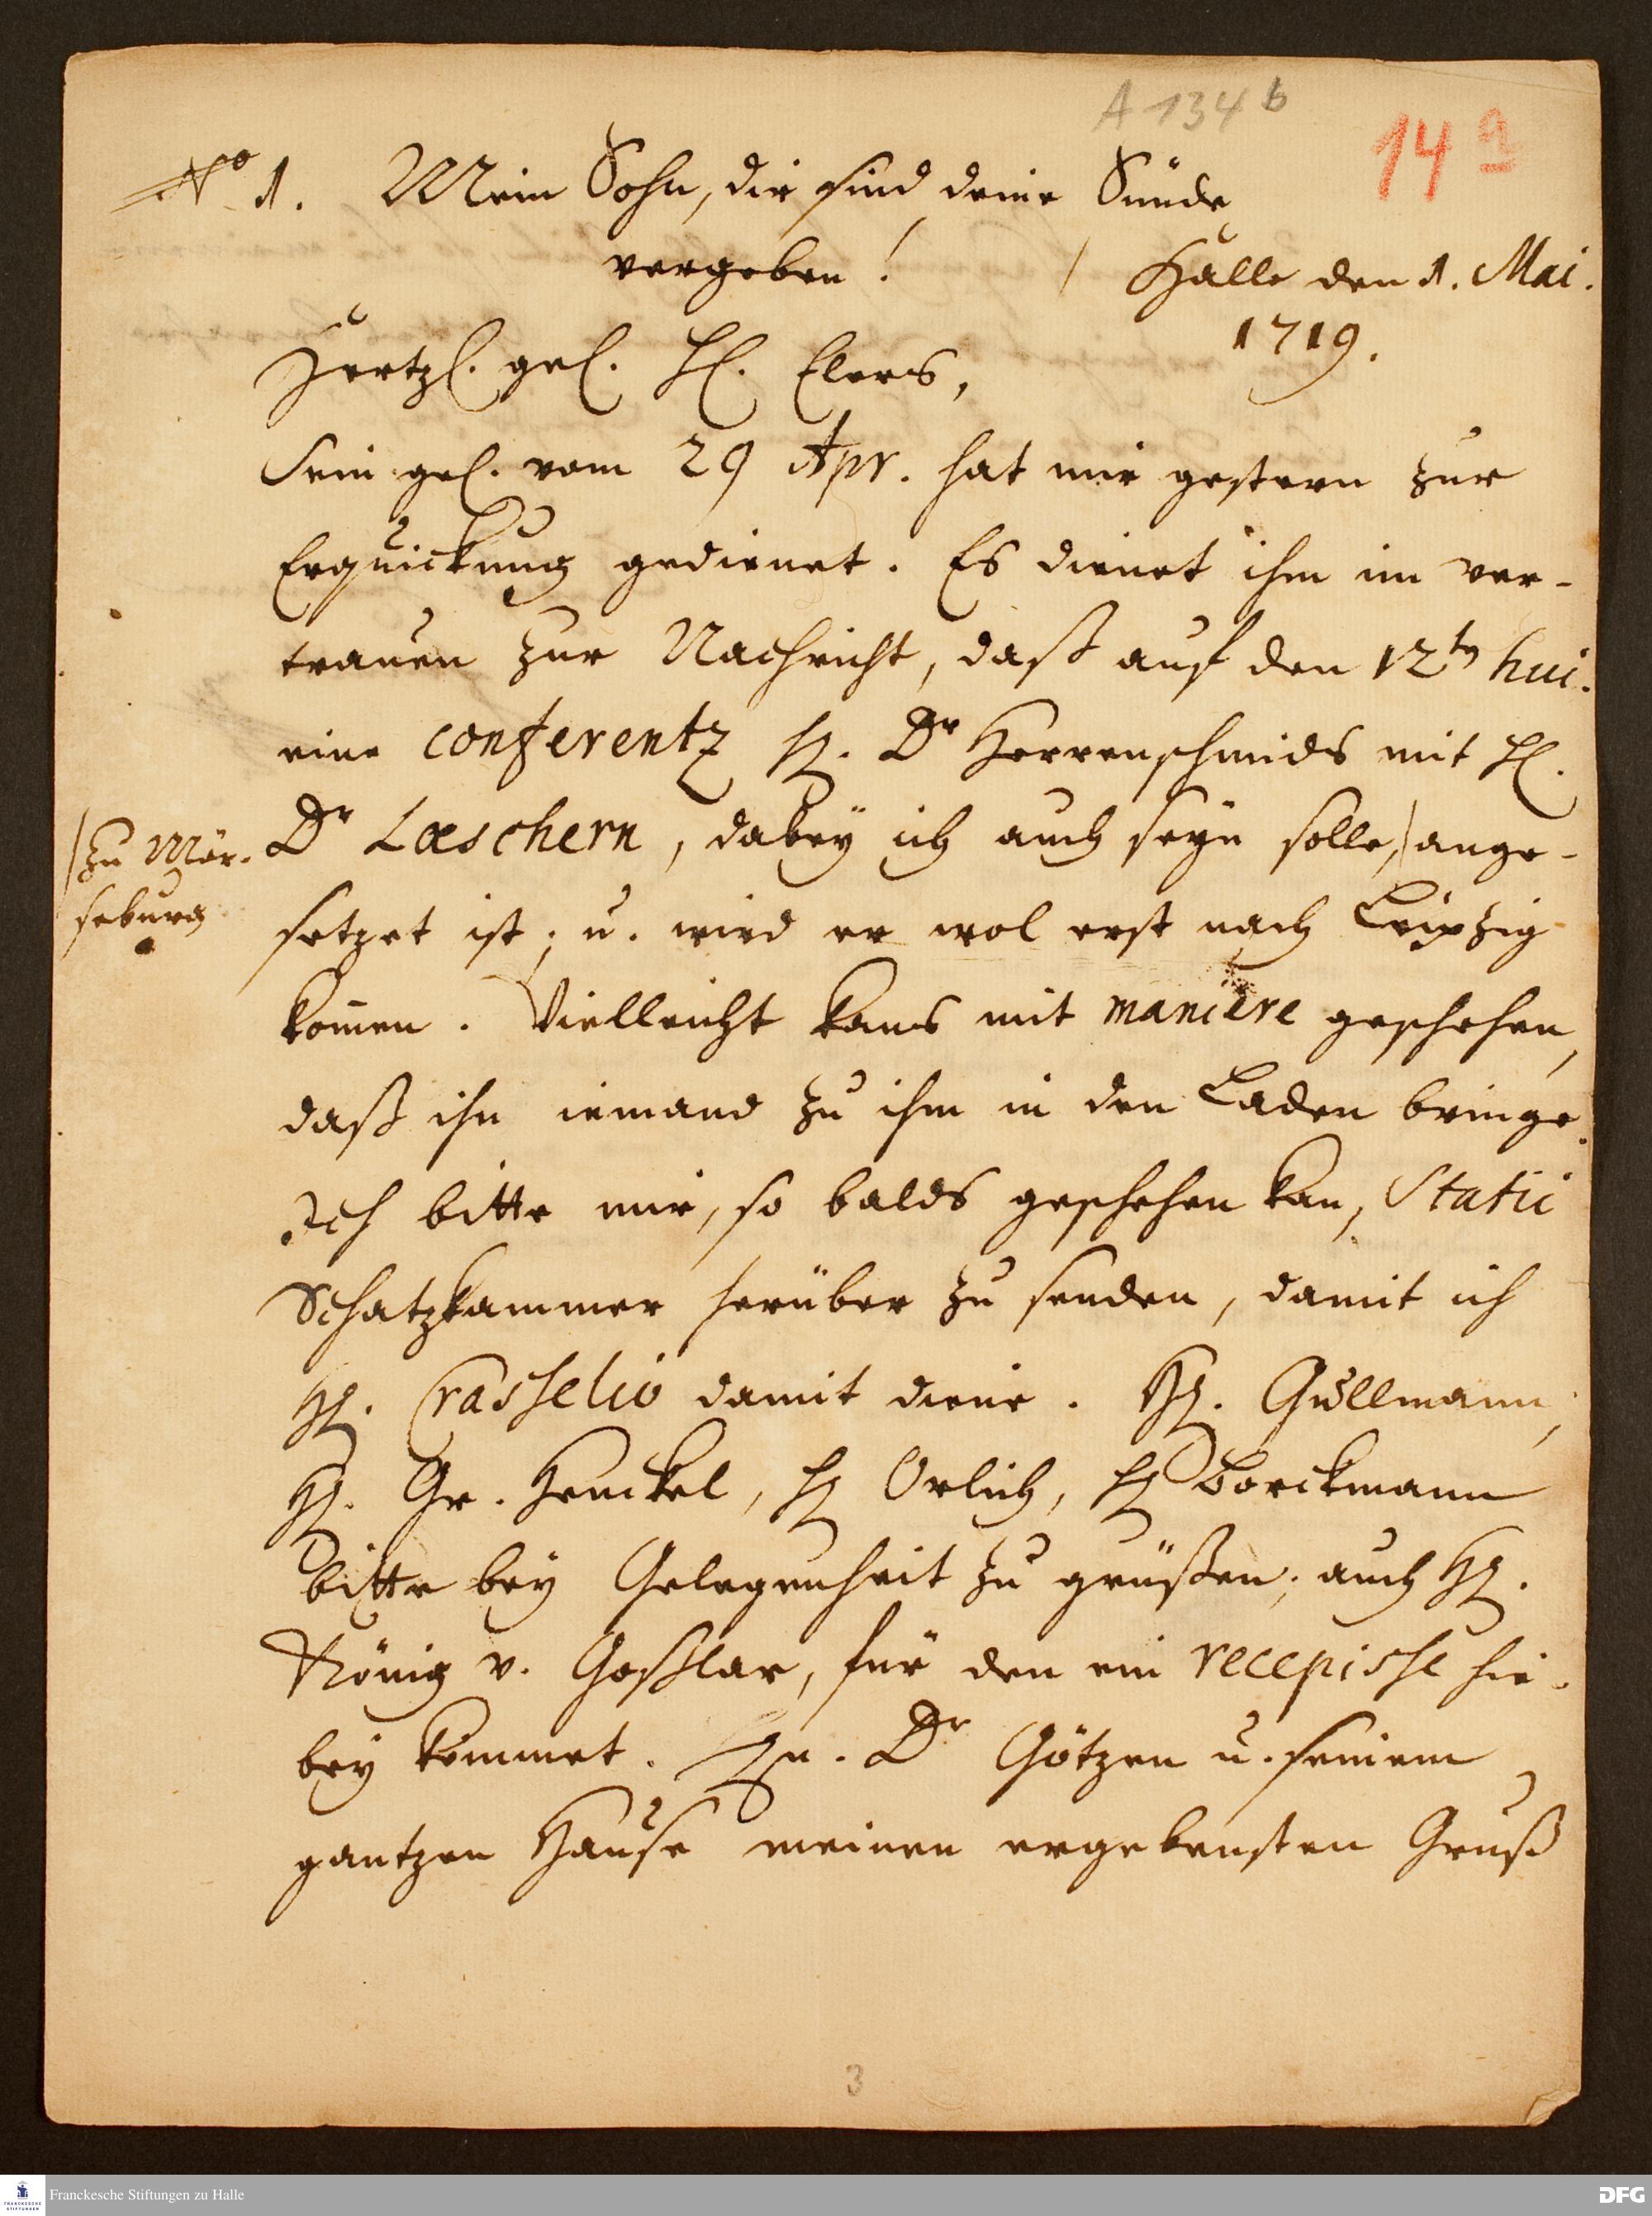 A 134 b
14 a
No 1. Mein Sohn, dir sind deine Sünde
vergeben! / Halle den 1. Mai.
1719.
Hertzl. gel. H. Elers,
Sein gel. vom 29 Apr. hat mir gestern zur
Erquickung gedienet. Es dienet ihm im ver-
trauen zur Nachricht, daß auf den 12tn hui.
eine conferentz H. Dr Herrenschmids mit H.
Dr Löschern, dabey ich auch seyn solle,/ ange-
/zu Mör-
seburg
setzet ist; u. wird er wol erst nach Leipzig
kom̄en. Vielleicht kans mit maniere geschehen,
daß ihn iemand zu ihm in den Laden bringe.
Ich bitte mir, so balds geschehen kan, Statii
Schatzkammer herüber zu senden, damit ich
H. Crasselio damit diene. H. Gullmann,
H. Gr. Henckel, H Orlich, H Borckmann
bitte bey Gelegenheit zu grüßen; auch H.
König v. Goßlar, für den ein recepisse hie-
bey kommet. Hn. Dr Götzen u. seinem
gantzen Hause meinen ergebensten Gruß
3
Franckesche Stiftungen zu Halle
DFG